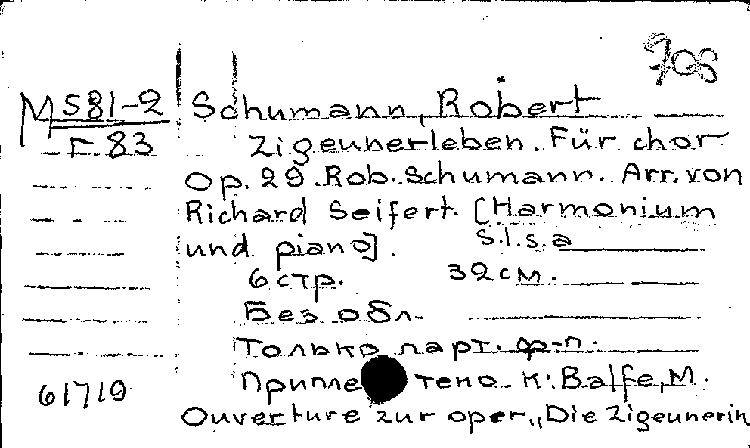 708
М 581-2 Schumann, Robert
F 83 Zigeunerleben. Für chor
Op. 29. Rob. Schumann. Arr. von
Richard Seifert. [Harmonium
und piano]. S.l.s.a
6 стр. 32 см.
Без обл.
Только парт. ф-п.
Припле тено к: Balfe, M.
61719
Ouverture zur oper „Die Zigeunerin